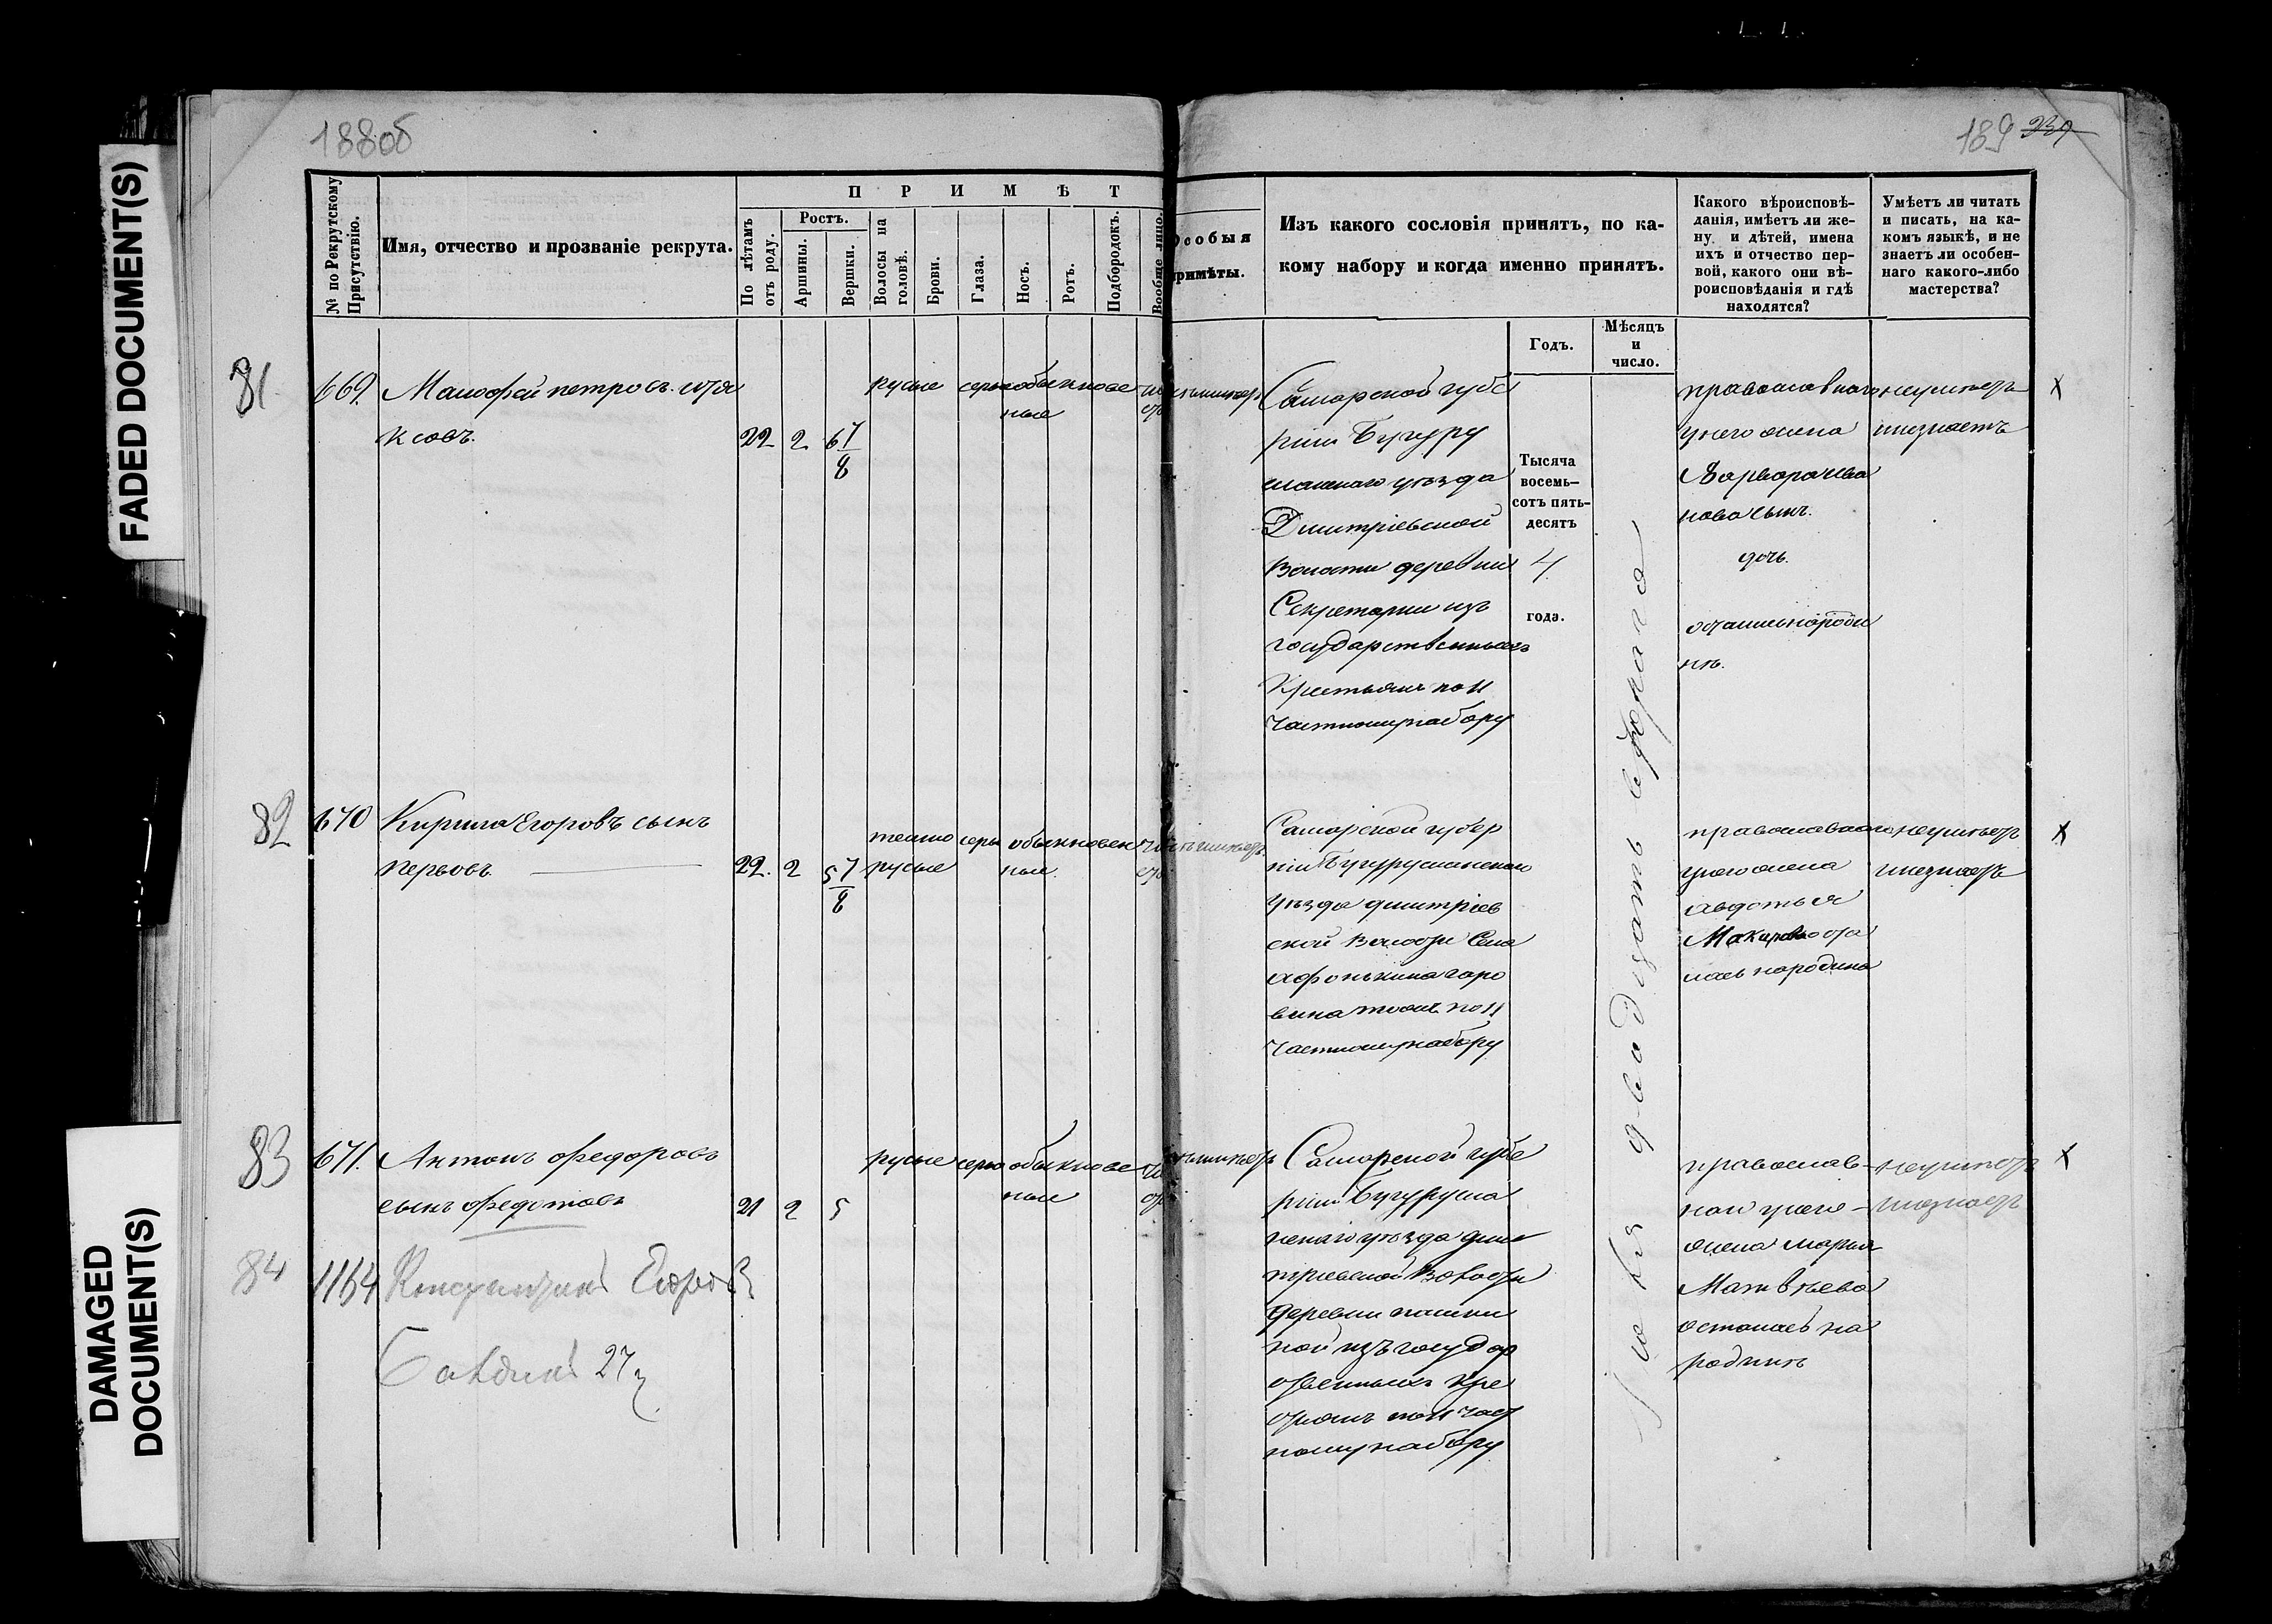 FADED DOCUMENT(S)
DAMAGED
DOCUMENT(S)
188об
189
239
№ по Рекрутскому
Присутствію.
Имя, отчество и прозваніе рекрута.
П Р И М Ѣ Т
По лѣтамъ
отъ роду.
Ростъ.
Аршины.
Вершки.
Волосы на
головѣ.
Брови.
Глаза.
Носъ.
Ротъ.
Подбородокъ.
Вообще лицо.
Особыя
примѣты.
Изъ какого сословія принятъ, по ка-
кому набору и когда именно принятъ.
Годъ.
Мѣсяцъ
и
число.
Какого вѣроисповѣ-
данія, имѣетъ ли же-
ну и дѣтей, имена
ихъ и отчество пер-
вой, какого они вѣ-
роисповѣданія и гдѣ
находятся?
Умѣетъ ли читать
и писать, на ка-
комъ языкѣ, и не
знаетъ ли особен-
наго какого-либо
мастерства?
Тысяча
восемь-
сотъ пять-
десятъ
4
года.
двадцать втораго
81
669.
петровъ
ксовъ.
22 2 6 7/8
русые серые обыкнове
ные
Самарской губе
рніи Бугуру
сланскаго уѣзда
Дмитріевской
Волости деревни
Секретарки изъ
государственныхъ
Крестьянъ по 11
частному набору
православнаго
у него жена
Варвара Ива
нова сынъ.
дочь.
остались народи
нѣ.
неумѣетъ
инезнаетъ
х
82
670
Кирила Егоровъ сынъ
Перьовъ.
22. 2 5 7/8
темно
русые
серы
обыкновен
ные
Самарской губер
ніи Бугурусланскаго
уѣзда дмитріев
ской Волости Села
Афонькина
по 11
частному набору
православнаго
у него жена
авдотья
Макарова оста
лась народинѣ
неумѣетъ
инезнаетъ
х
83
671.
Антонъ Федоровъ
сынъ Федотовъ
21 2 5
русые серые обыкнове
ные
Самарской губе
рніи Бугурусла
нскаго уѣзда дми
тріевской Волости
деревни
изъ государ
ственныхъ кре
стьянъ по 11 част
ному набору
православ-
ной у него-
жена марья
Матвѣева
осталась на
родинѣ
неумѣетъ
инезнаетъ
х
84
1164
Константинъ Егоровъ
27